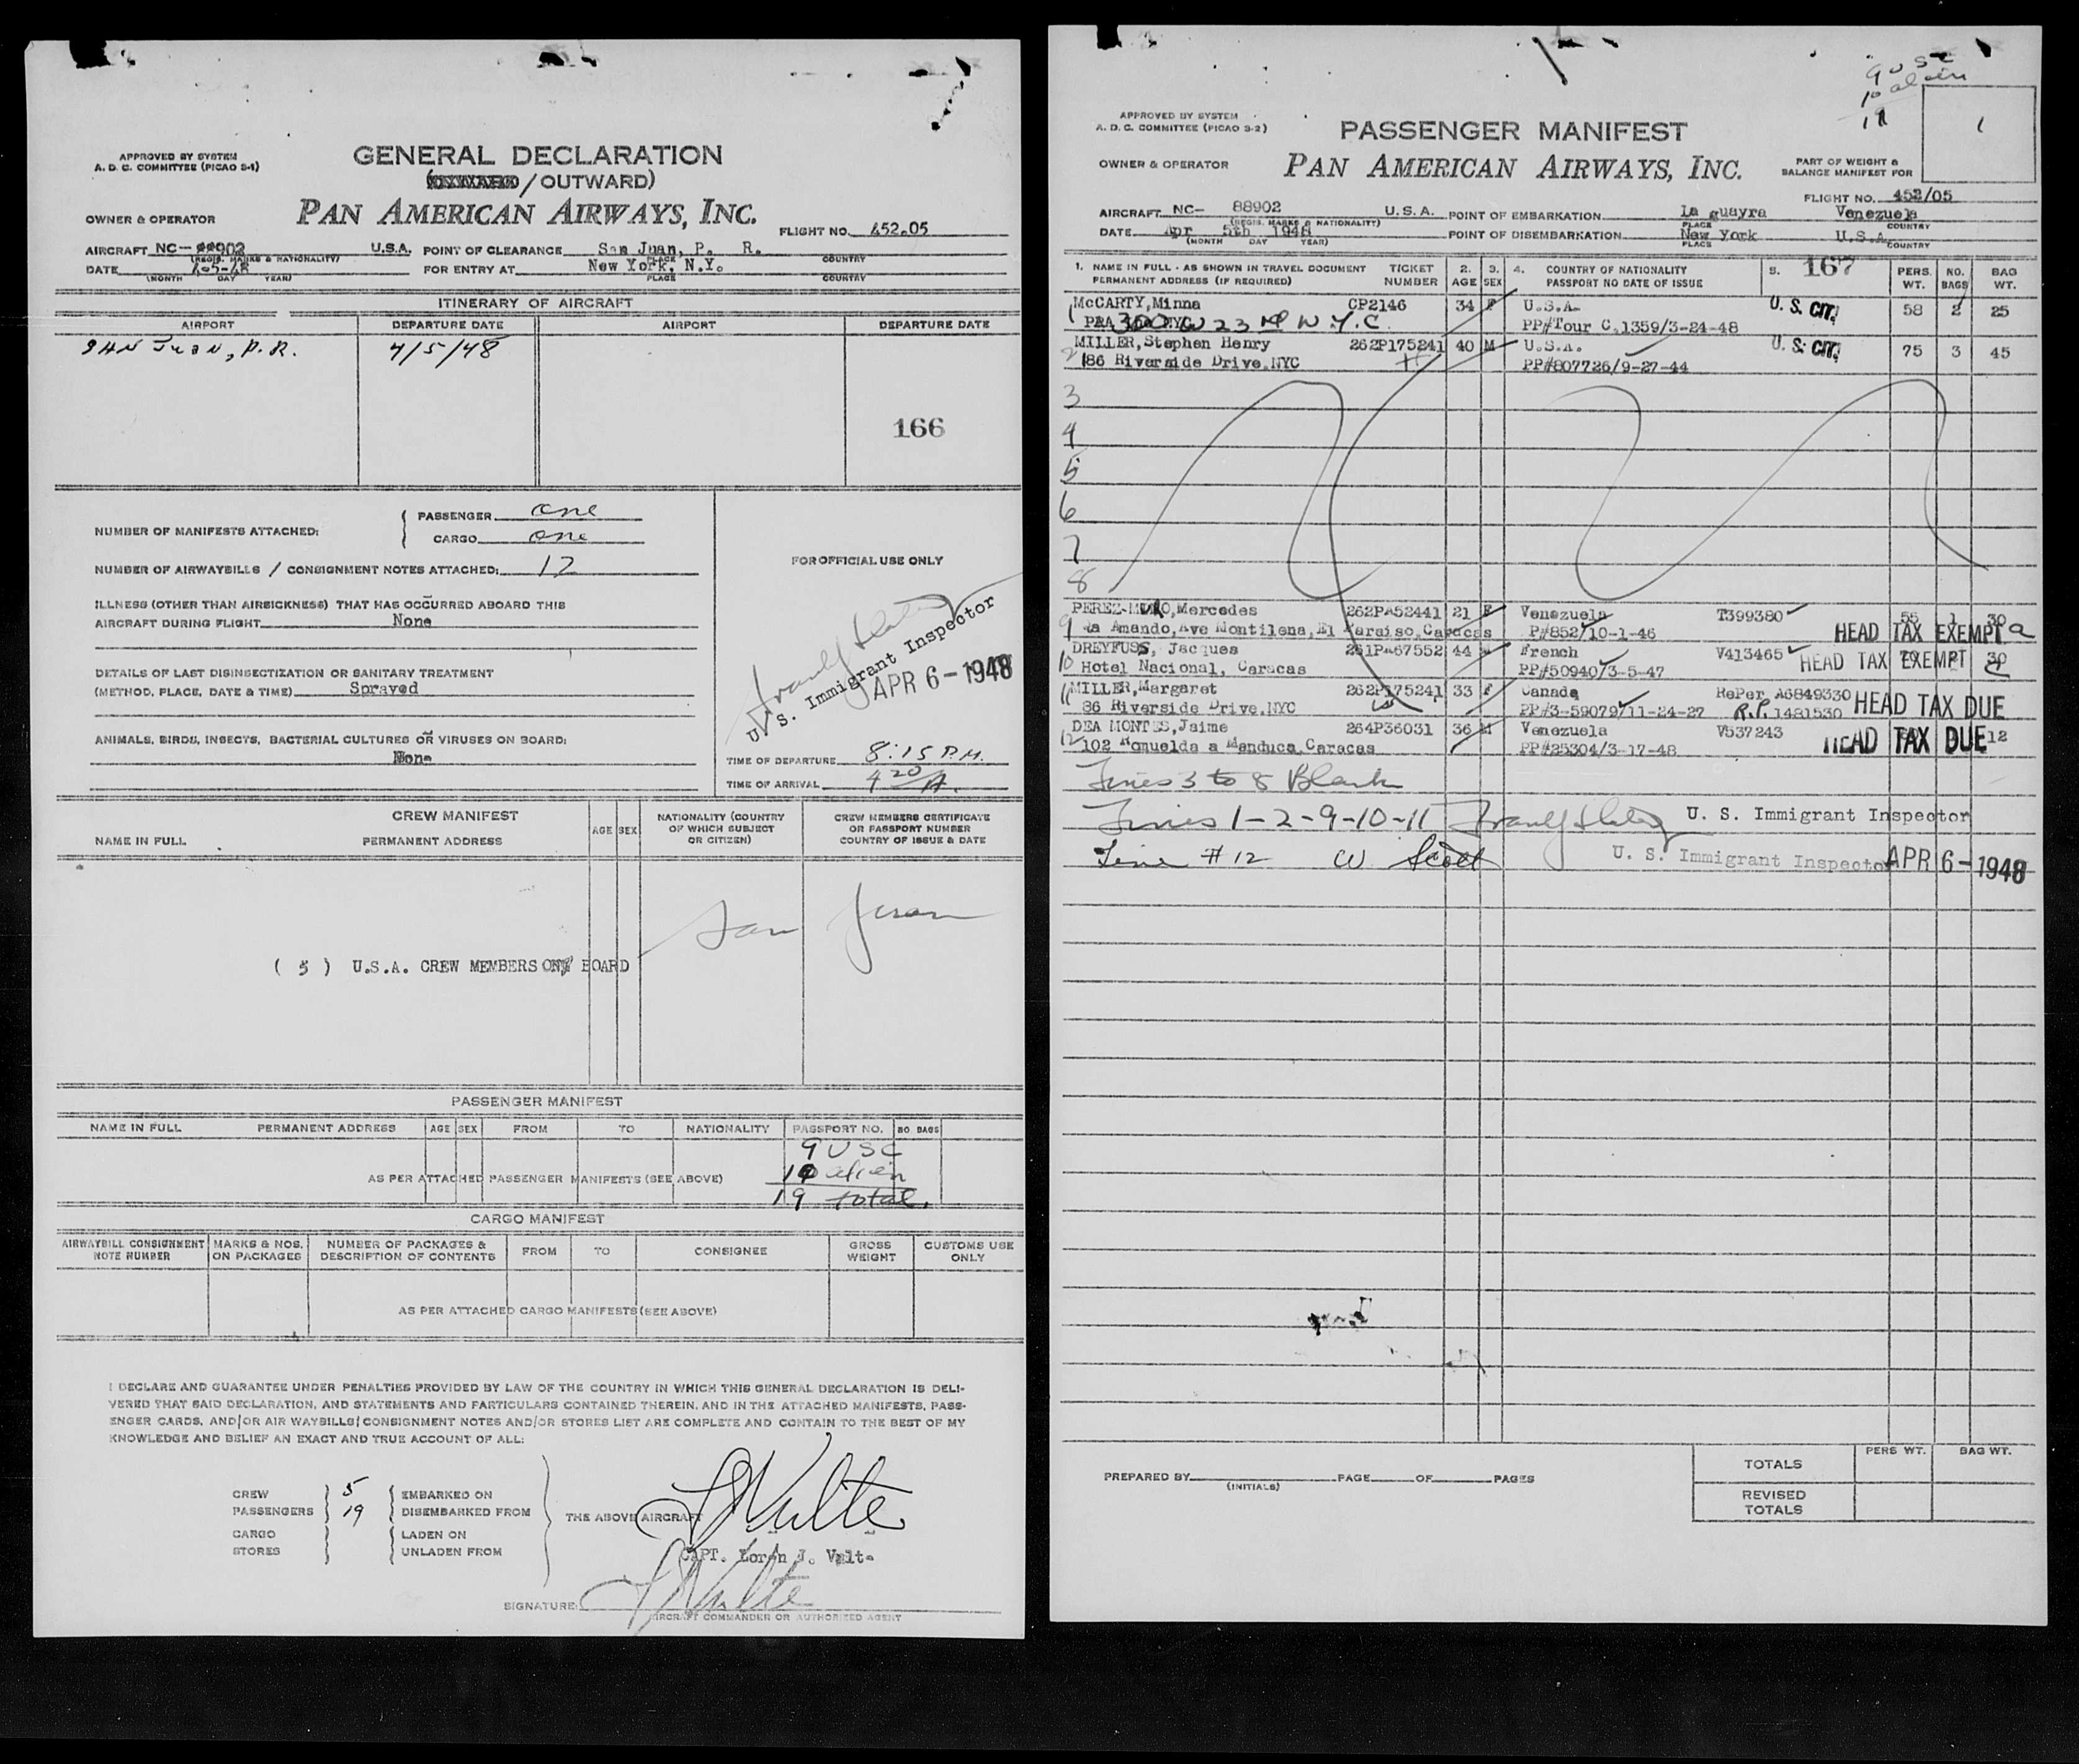 APPROVED BY SYSTEM
A. D. C. COMMITTEE (PICAO 3-1)
GENERAL DECLARATION
/ OUTWARD)
PAN AMERICAN AIRWAYS, INC.
OWNER & OPERATOR
FLIGHT NO. 452.05
AIRCRAFT NC- 88902 U.S.A. POINT OF CLEARANCE San Juan, P. R.
(REGIS. MARKS & NATIONALITY) PLACE COUNTRY
DATE 4-5-48 FOR ENTRY AT New York, N.Y.
(MONTH DAY YEAR) PLACE COUNTRY
ITINERARY OF AIRCRAFT
AIRPORT DEPARTURE DATE AIRPORT DEPARTURE DATE
SAN JUAN, P.R. 4/5/48
166
NUMBER OF MANIFESTS ATTACHED: PASSENGER one
CARGO one
NUMBER OF AIRWAYBILLS / CONSIGNMENT NOTES ATTACHED: 12
FOR OFFICIAL USE ONLY
ILLNESS (OTHER THAN AIRSICKNESS) THAT HAS OCCURRED ABOARD THIS
AIRCRAFT DURING FLIGHT None
DETAILS OF LAST DISINSECTIZATION OR SANITARY TREATMENT
(METHOD, PLACE, DATE & TIME) Sprayed
U. S. Immigrant Inspector
APR 6-1948
ANIMALS, BIRDS, INSECTS, BACTERIAL CULTURES OR VIRUSES ON BOARD:
None
TIME OF DEPARTURE 8:15 P.M.
TIME OF ARRIVAL 4 20 A.
CREW MANIFEST
NAME IN FULL PERMANENT ADDRESS AGE SEX NATIONALITY (COUNTRY OF WHICH SUBJECT OR CITIZEN) CREW MEMBERS CERTIFICATE OR PASSPORT NUMBER COUNTRY OF ISSUE & DATE
San Juan
( 5 ) U.S.A. CREW MEMBERS ON BOARD
PASSENGER MANIFEST
NAME IN FULL PERMANENT ADDRESS AGE SEX FROM TO NATIONALITY PASSPORT NO. NO BAGS
9 USC
10 alien
AS PER ATTACHED PASSENGER MANIFESTS (SEE ABOVE)
19 total.
CARGO MANIFEST
AIRWAYBILL CONSIGNMENT NOTE NUMBER MARKS & NOS. ON PACKAGES NUMBER OF PACKAGES & DESCRIPTION OF CONTENTS FROM TO CONSIGNEE GROSS WEIGHT CUSTOMS USE ONLY
AS PER ATTACHED CARGO MANIFESTS (SEE ABOVE)
I DECLARE AND GUARANTEE UNDER PENALTIES PROVIDED BY LAW OF THE COUNTRY IN WHICH THIS GENERAL DECLARATION IS DELI-
VERED THAT SAID DECLARATION, AND STATEMENTS AND PARTICULARS CONTAINED THEREIN, AND IN THE ATTACHED MANIFESTS, PASS-
ENGER CARDS, AND/OR AIR WAYBILLS/CONSIGNMENT NOTES AND/OR STORES LIST ARE COMPLETE AND CONTAIN TO THE BEST OF MY
KNOWLEDGE AND BELIEF AN EXACT AND TRUE ACCOUNT OF ALL:
CREW 5 EMBARKED ON
PASSENGERS 19 DISEMBARKED FROM
CARGO LADEN ON
STORES UNLADEN FROM
THE ABOVE AIRCRAFT
CAPT. Loren J. Vulte
SIGNATURE:
AIRCRAFT COMMANDER OR AUTHORIZED AGENT
9 USC
10 alien
19
APPROVED BY SYSTEM
A. D. C. COMMITTEE (PICAO 3-2)
PASSENGER MANIFEST
1
OWNER & OPERATOR
PAN AMERICAN AIRWAYS, INC.
PART OF WEIGHT &
BALANCE MANIFEST FOR
FLIGHT NO. 452/05
AIRCRAFT NC- 88902 U.S.A. POINT OF EMBARKATION La guayra Venezuela
(REGIS. MARKS & NATIONALITY) PLACE COUNTRY
DATE Apr 5th 1948 POINT OF DISEMBARKATION New York U.S.A.
(MONTH DAY YEAR) PLACE COUNTRY
1. NAME IN FULL - AS SHOWN IN TRAVEL DOCUMENT TICKET 2. 3. 4. COUNTRY OF NATIONALITY 5. 167 PERS. NO. BAG
PERMANENT ADDRESS (IF REQUIRED) NUMBER AGE SEX PASSPORT NO DATE OF ISSUE WT. BAGS WT.
1 McCARTY, Minna CP2146 34 F U.S.A. U. S. CIT. 58 2 25
300 W 23rd N.Y.C. PP#Tour C.1359/3-24-48
2 MILLER, Stephen Henry 262P175241 40 M U.S.A. U. S. CIT. 75 3 45
86 Riverside Drive, NYC PP#807726/9-27-44
3
4
5
6
7
8
9 Mercedes 262PA52441 21 F Venezuela T399380 55 1 30
Amando, Ave Montilena, El Paraiso, Caracas P#852/10-1-46 HEAD TAX EXEMPT
10 DREYFUSS, Jacques 261PA67552 44 M French V413465 30
Hotel Nacional, Caracas PP#50940/3-5-47 HEAD TAX EXEMPT
11 MILLER, Margaret 262P175241 33 F Canada RePer A6849330 HEAD TAX DUE
86 Riverside Drive, NYC PP#3-59079/11-24-27 R.P. 1481530
12 DEA MONTES, Jaime 264P36031 36 M Venezuela V537243 12
102 Romuelda a Manduca, Caracas PP#25304/3-17-48 HEAD TAX DUE
Lines 3 to 8 Blank
Lines 1-2-9-10-11 U. S. Immigrant Inspector
Line #12 W Scott U. S. Immigrant Inspector APR 6-1948
PREPARED BY (INITIALS) PAGE OF PAGES
PERS WT. BAG WT.
TOTALS
REVISED TOTALS